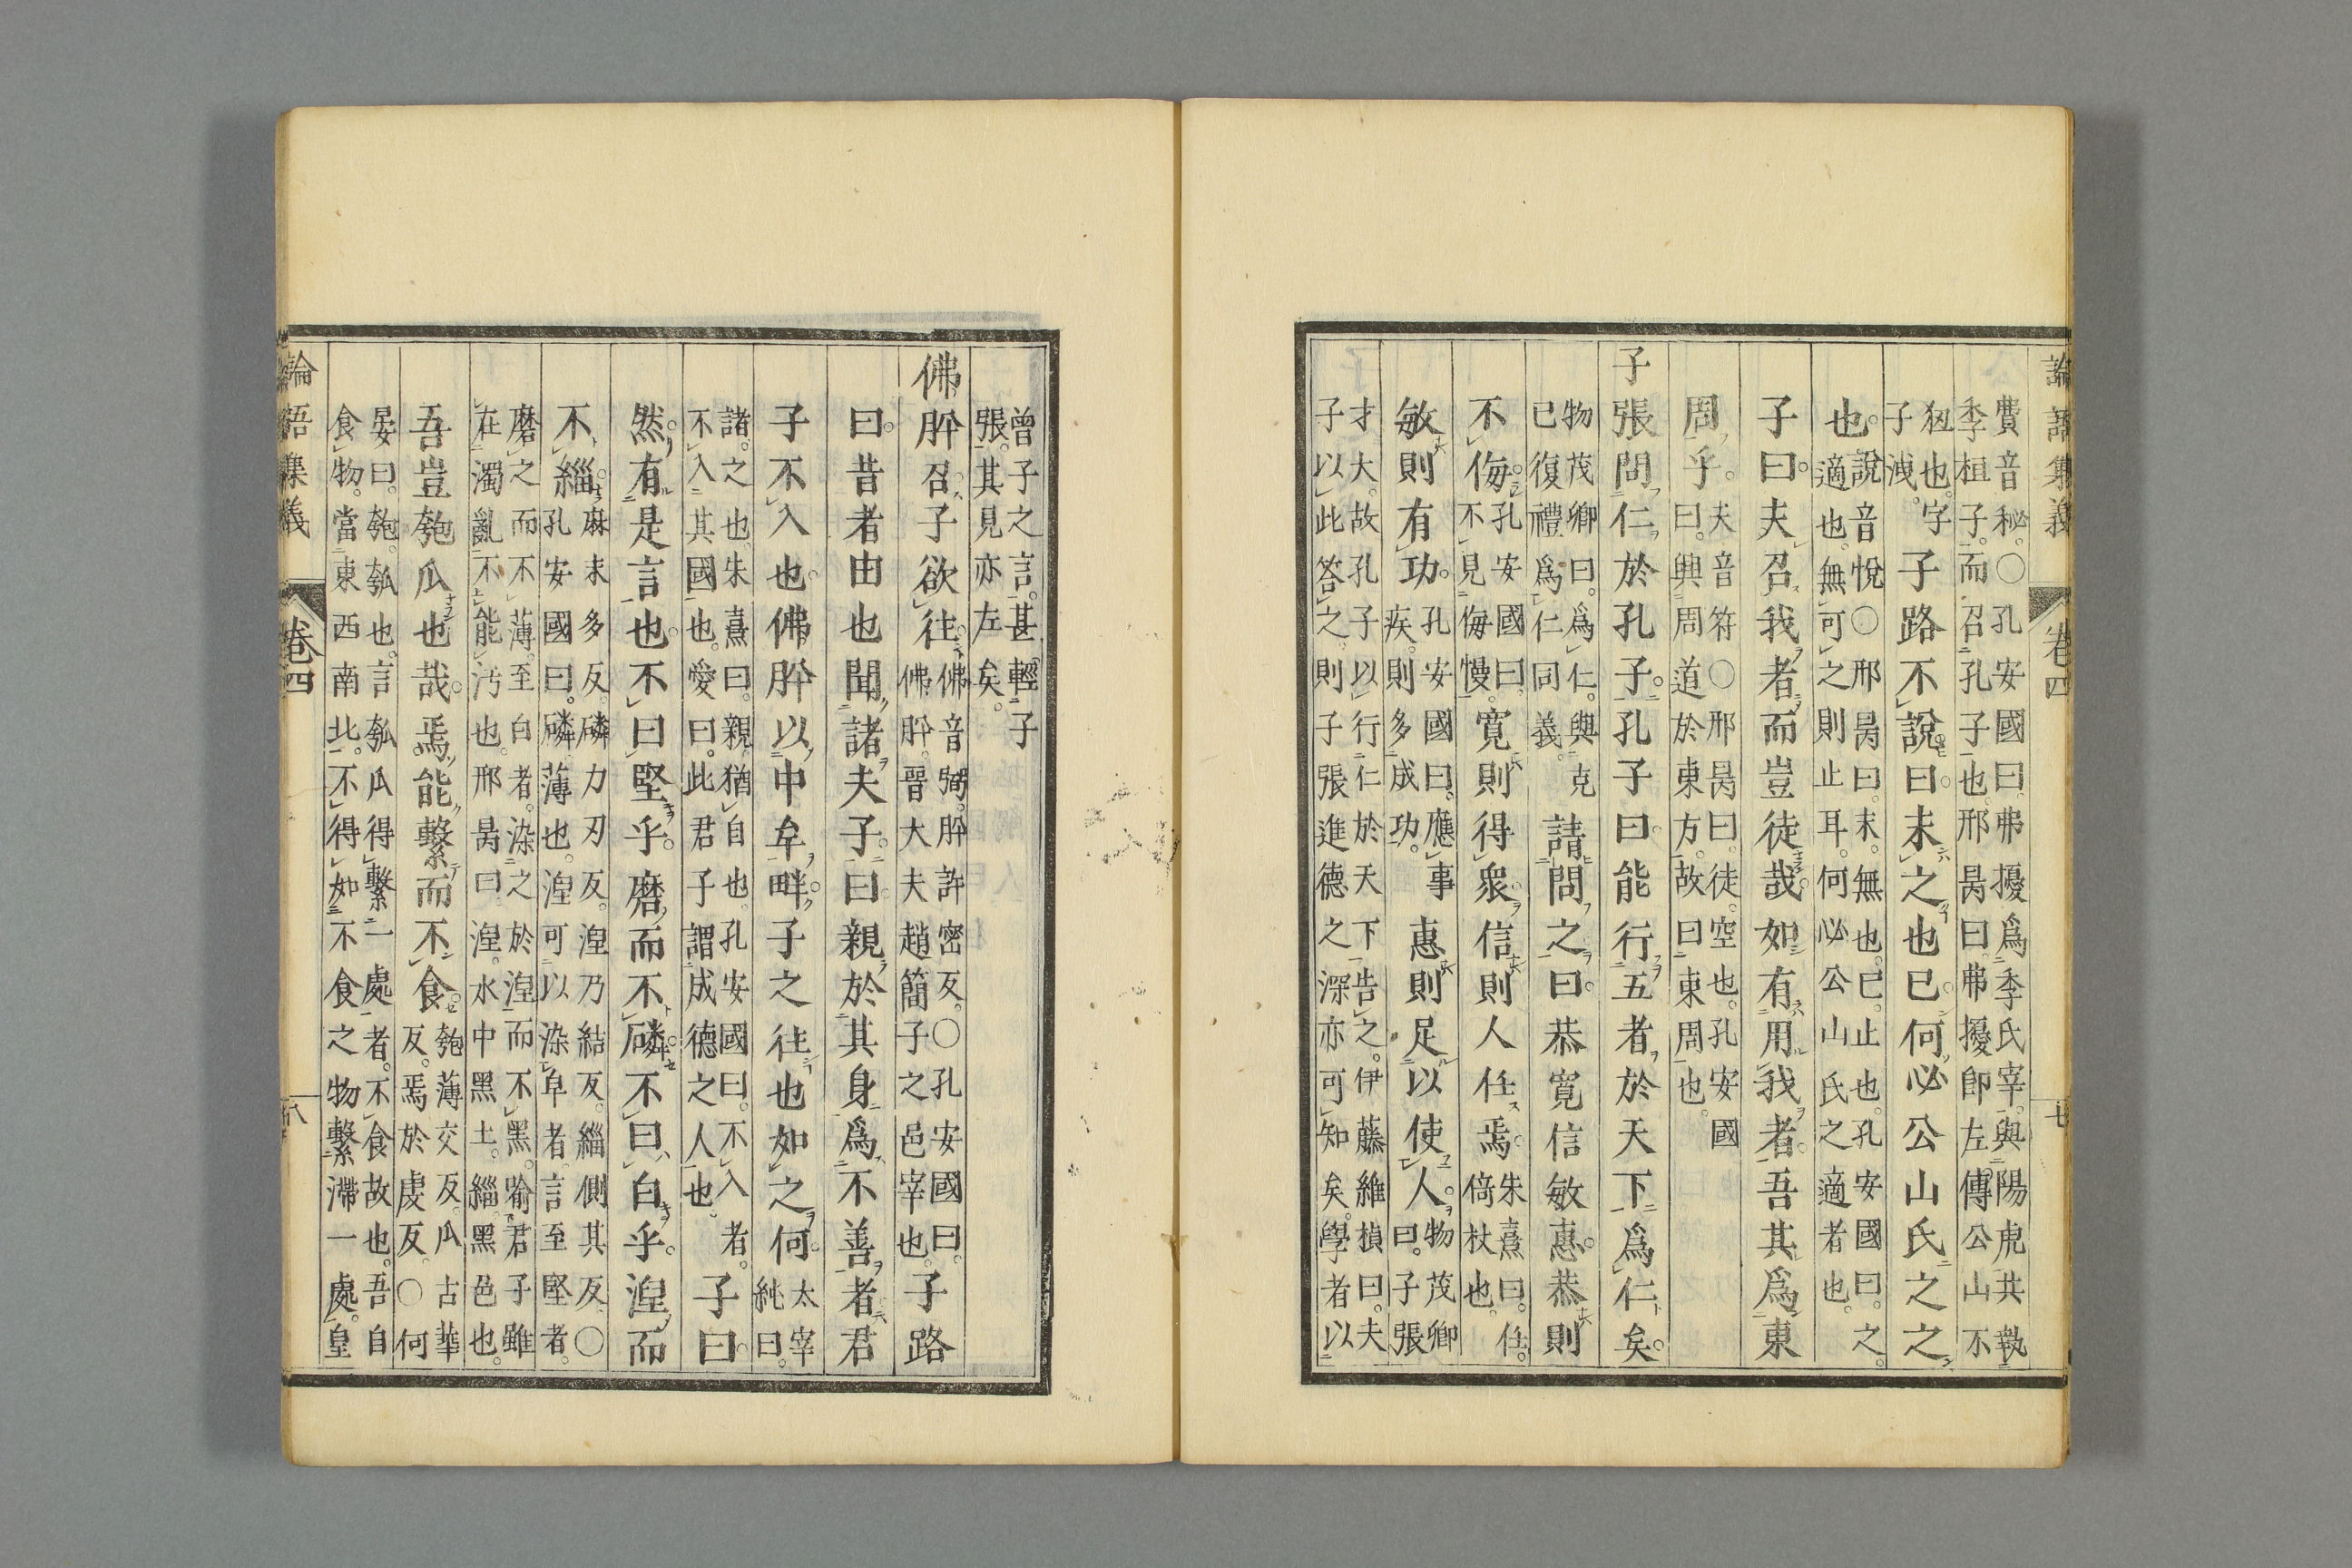 論語集義 卷四 七
費音秘。○孔安國曰。弗擾爲季氏宰。與陽虎共執
季桓子。而召孔子也。邢昺曰。弗擾即左傳公山不
狃也。字
子洩。
子路不說。曰。末之也已。何必公山氏之之
也。
說音悅○邢昺曰。末。無也。已。止也。孔安國曰。之。
適也。無可之則止耳。何必公山氏之適者也。
子曰。夫召我者。而豈徒哉。如有用我者。吾其爲東
周乎。
夫音符○邢昺曰。徒。空也。孔安國
曰。興周道於東方。故曰東周也。
子張問仁於孔子。孔子曰。能行五者於天下爲仁矣。
物茂卿曰。爲仁。與克
已復禮爲仁同義。
請問之。曰。恭寬信敏惠。恭則
不侮。
孔安國曰。
不見侮慢。
寬則得衆。信則人任焉。
朱熹曰。任。
倚杖也。
敏則有功。
孔安國曰。應事
疾。則多成功。
惠則足以使人。
物茂卿
曰。子張
才大。故孔子以行仁於天下告之。伊藤維楨曰。夫
子以此答之。則子張進德之深亦可知矣。學者以
曾子之言。甚輕子
張。其見亦左矣。
佛肸召。子欲往。
佛音弼。肸許密反。○孔安國曰。
佛肸。晉大夫趙簡子之邑宰也。
子路
曰。昔者由也聞諸夫子。曰親於其身爲不善者。君
子不入也。佛肸以中牟畔。子之往也如之何。
太宰
純曰。
諸。之也。朱熹曰。親。猶自也。孔安國曰。不入者。
不入其國也。愛曰。此君子謂成德之人也。
子曰。
然。有是言也。不曰堅乎。磨而不磷。不曰白乎。涅而
不緇。
麻末多反。磷力刃反。涅乃結反。緇側其反。○
孔安國曰。磷薄也。涅可以染皁者。言至堅者。
磨之而不薄。至白者。染之於涅而不黑。喻君子雖
在濁亂。不能汚也。邢昺曰。涅。水中黑土。緇。黑色也。
吾豈匏瓜也哉。焉能繫而不食。
匏薄交反。瓜古華
反。焉於虔反。○何
晏曰。匏。瓠也。言瓠瓜得繫一處者。不食故也。吾自
食物。當東西南北。不得如不食之物繫滯一處。皇
論語集義 卷四 八